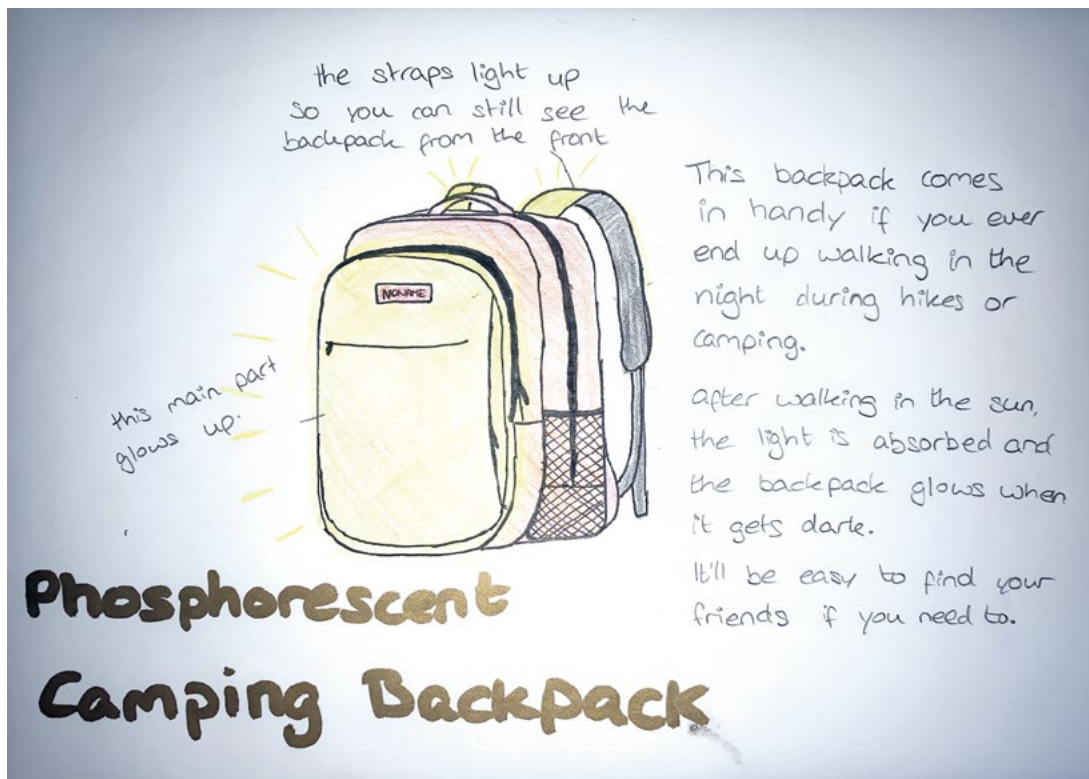 the straps light up
so you can still see the
backpack from the front
This backpack comes
in handy if you ever
end up walking in the
night during hikes or
camping.
after walking in the sun,
the light is absorbed and
the backpack glows when
it gets dark.
It'll be easy to find your
friends if you need to.
NONAME
this main part
glows up.
Phosphorescent
Camping Backpack